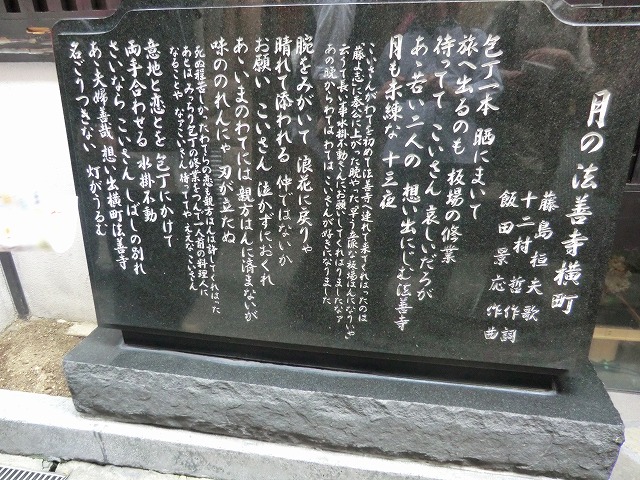 月の法善寺横町
藤島桓夫 歌
十二村 哲 作詞
飯田景応 作曲
包丁一本 晒にまいて
旅へ出るのも 板場の修業
待ってて こいさん 哀しいだろが
あゝ若い二人の 想い出にしむ法善寺
月も未練な 十三夜
こいさんがわてを初めて法善寺へ連れて来てくれはったのは
藤よ志に奉公に上がった晩やった 早う立派な板場はんになりいや
云うて長い事水掛不動さんにお願いしてくれはりましたなァ
あの晩からわては わてはこいさんが好きになりました
腕をみがいて 浪花に戻りゃ
晴れて添われる 仲ではないか
お願い こいさん 泣かずにおくれ
あゝいまのわてには 親方はんに済まないが
味ののれんにゃ 刃が立たぬ
死ぬ程苦しかったわてらの恋も親方はんは許してくれはった
あとはみっちり包丁の修業をつんで一人前の料理人に
なることや な こいさん 待っててや ええなこいさん
意地と恋とを 包丁にかけて
両手合わせる 水掛不動
さいなら こいさん しばしの別れ
あゝ夫婦善哉 想い出横町法善寺
名ごりつきない 灯がうるむ